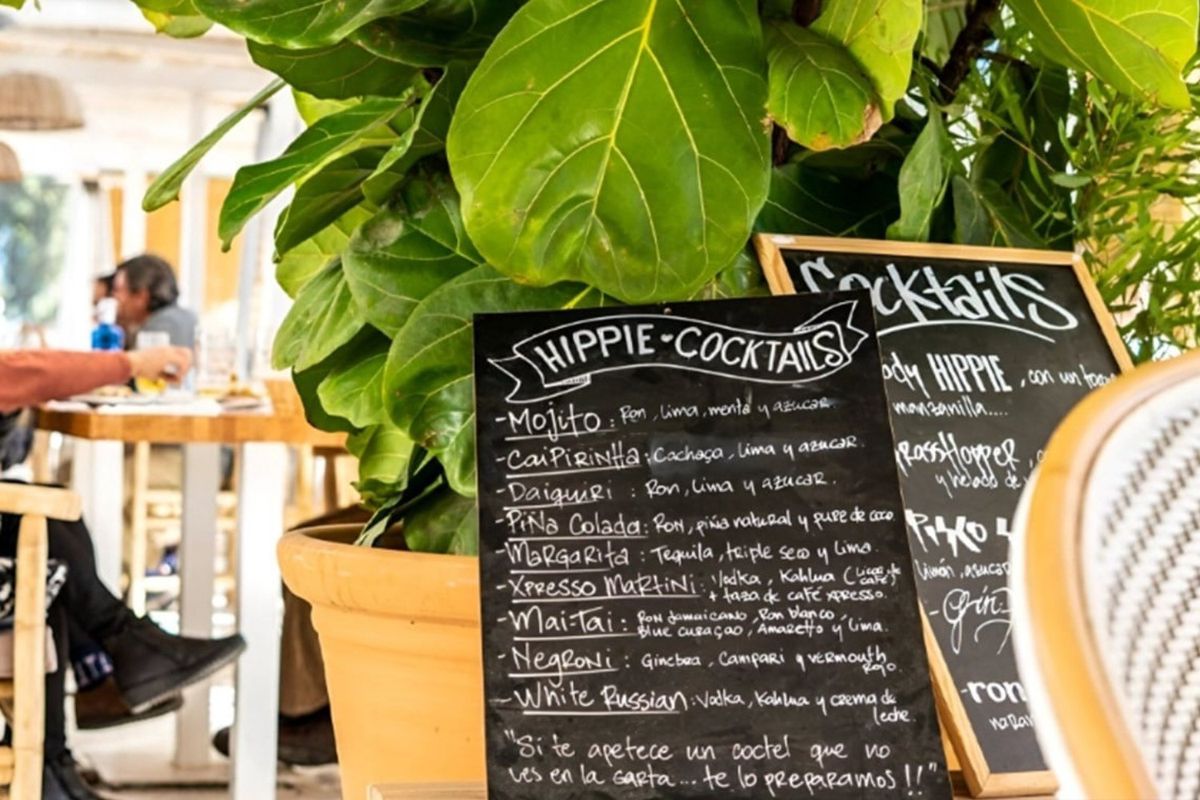 HIPPIE-COCKTAILS
-Mojito: Ron, lima, menta y azucar.
-Caipirinha: Cachaça, lima y azucar.
-Daiquiri: Ron, lima y azucar.
-Piña Colada: Ron, piña natural y pure de coco
-Margarita: Tequila, triple seco y lima.
-Xpresso Martini: Vodka, Kahlua (licor de café)
+ taza de café xpresso.
-Mai-Tai: Ron Jamaicano, Ron blanco,
Blue curaçao, Amaretto y lima.
-Negroni: Ginebra, Campari y vermouth
rojo.
-White Russian: Vodka, Kahlua y crema de
leche.
"Si te apetece un coctel que no
ves en la carta... te lo preparamos!!"
Cocktails
HIPPIE, con un
manzanilla....
rassHopper
y helado de
limón, azucar
-Gin
-ron